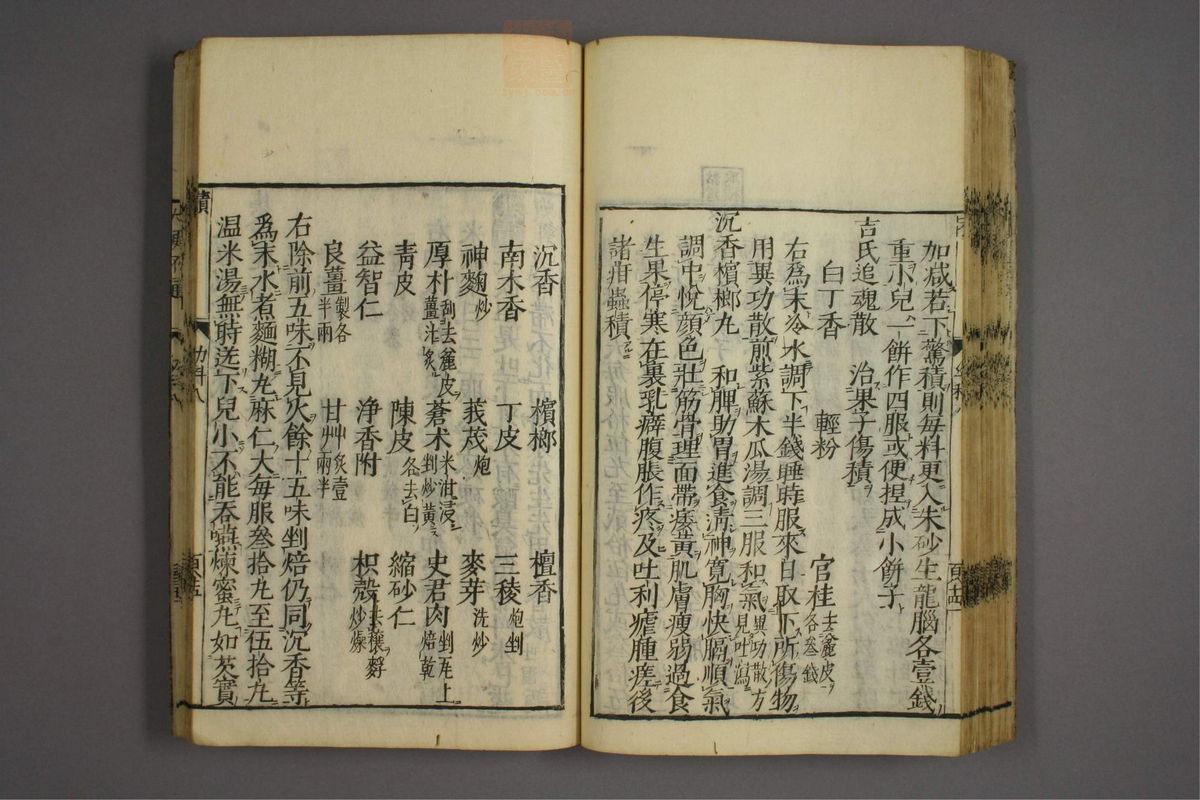 加減若下驚積則每料更入朱砂生龍腦各壹錢
重小兒一餅作四服或便捏成小餅子
吉氏追魂散　治果子傷積
白丁香　輕粉　官桂去麄皮各叁錢
右爲末冷水調下半錢睡時服來日取下所傷物
用異功散煎紫蘇木瓜湯調三服和氣異功散方見吐瀉
沉香檳榔丸　和脾助胃進食淸神寬胸快膈順氣
調中悅顏色壯筋骨理面帶痿黃肌膚瘦弱過食
生果停寒在裏乳癖腹脹作疼及吐利瘧腫瘥後
諸疳蟲積
沉香　檳榔　檀香
南木香　丁皮　三稜炮剉
神麴炒　莪茂炮　麥芽洗炒
厚朴刮去麄皮薑汁炙　蒼术米泔浸剉炒黃　史君肉剉瓦上焙乾
靑皮　陳皮去白　縮砂仁
益智仁　净香附　枳殼去穰麩炒燥
良薑製各半兩　甘艸炙壹兩半
右除前五味不見火餘十五味剉焙仍同沉香等
爲末水煮麵糊丸麻仁大每服叁拾丸至伍拾丸
温米湯無時送下兒小不能吞嚥煉蜜丸如芡實
續
幼科八